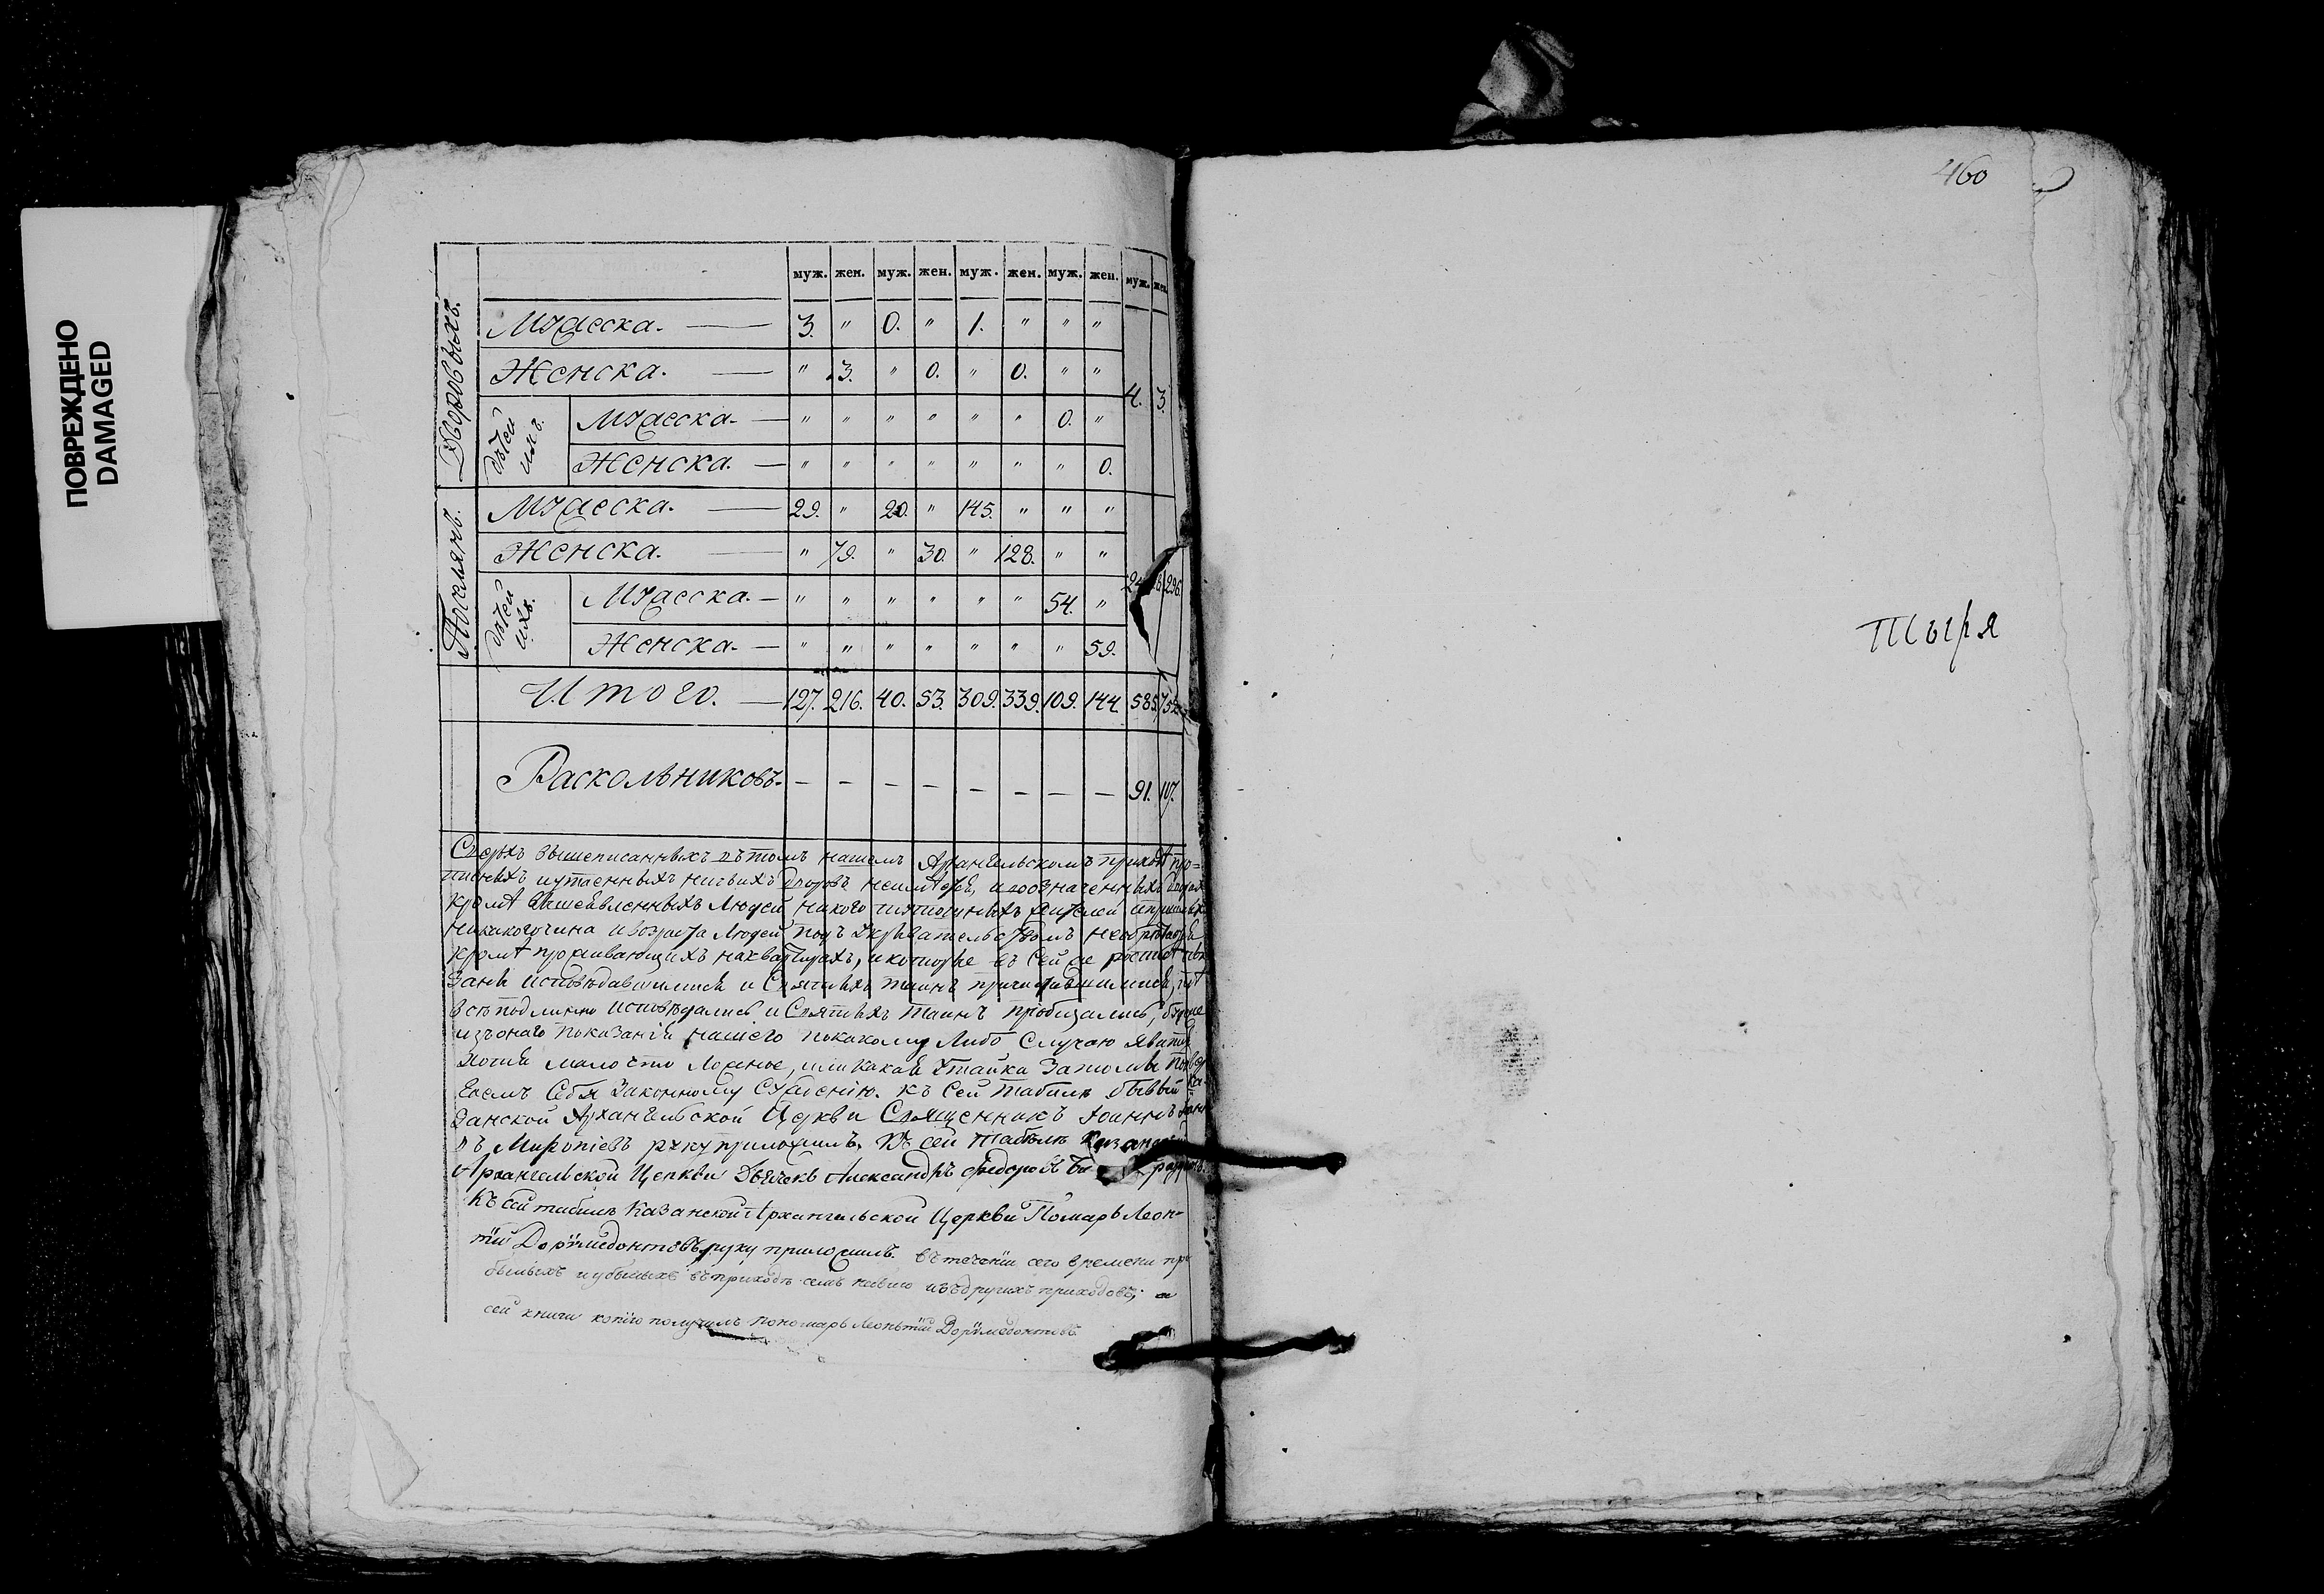 ПОВРЕЖДЕНО
DAMAGED
460
муж. жен. муж. жен. муж. жен. муж. жен. муж. жен.
Дворовыхъ.
Мужеска. — 3. " 0. " 1. " " "
Женска. — " 3. " 0. " 0. " "
4. 3.
дѣтей ихъ.
Мужеска. — " " " " " " 0. "
Женска. — " " " " " " " 0.
Поселянъ.
Мужеска. — 29. " 20. " 145. " " "
Женска. — " 79. " 30. " 128. " "
296.
дѣтей ихъ.
Мужеска. — " " " " " " 54. "
Женска. — " " " " " " " 59.
Итого. — 127. 216. 40. 53. 309. 339. 109. 144. 585.
Раскольниковъ. — — — — — — — — 91. 107.
Сверхъ вышеписанныхъ въ томъ нашемъ Архангельскомъ приходѣ про=
писныхъ и утаенныхъ ничьихъ дворовъ неимѣется, и въ означенныхъ
кромѣ людей, никого жителей
никакого чина и возраста людей подъ укрывательствомъ
кромѣ проживающихъ на квартирахъ, и которые въ сей
заны исповѣдавшимися и Святыхъ таинъ причастившимися, тѣ
всѣ подлинно исповѣдались и Святыхъ Таинъ приобщались,
изъ онаго показанія нашего по какому либо случаю явится
хотя мало что ложное, или какая утайка за то мы
гаемъ себя законному сужденію. Къ сей табели бывый Ка-
занской Архангельской Церкви Священникъ Іоаннъ
въ Миропіевъ руку приложилъ. Къ сей табели
Архангельской Церкви Дьячекъ Александръ Федоровъ
Къ сей табели Казанской Архангельской Церкви Помарь Леон-
тій Доримедонтовъ руку приложилъ. въ теченіи сего времени при
былыхъ и убылыхъ въ приходѣ семъ небыло изъ другихъ приходовъ; и
сей книги копію получилъ пономарь Леонтій Доримедонтовъ
тыря